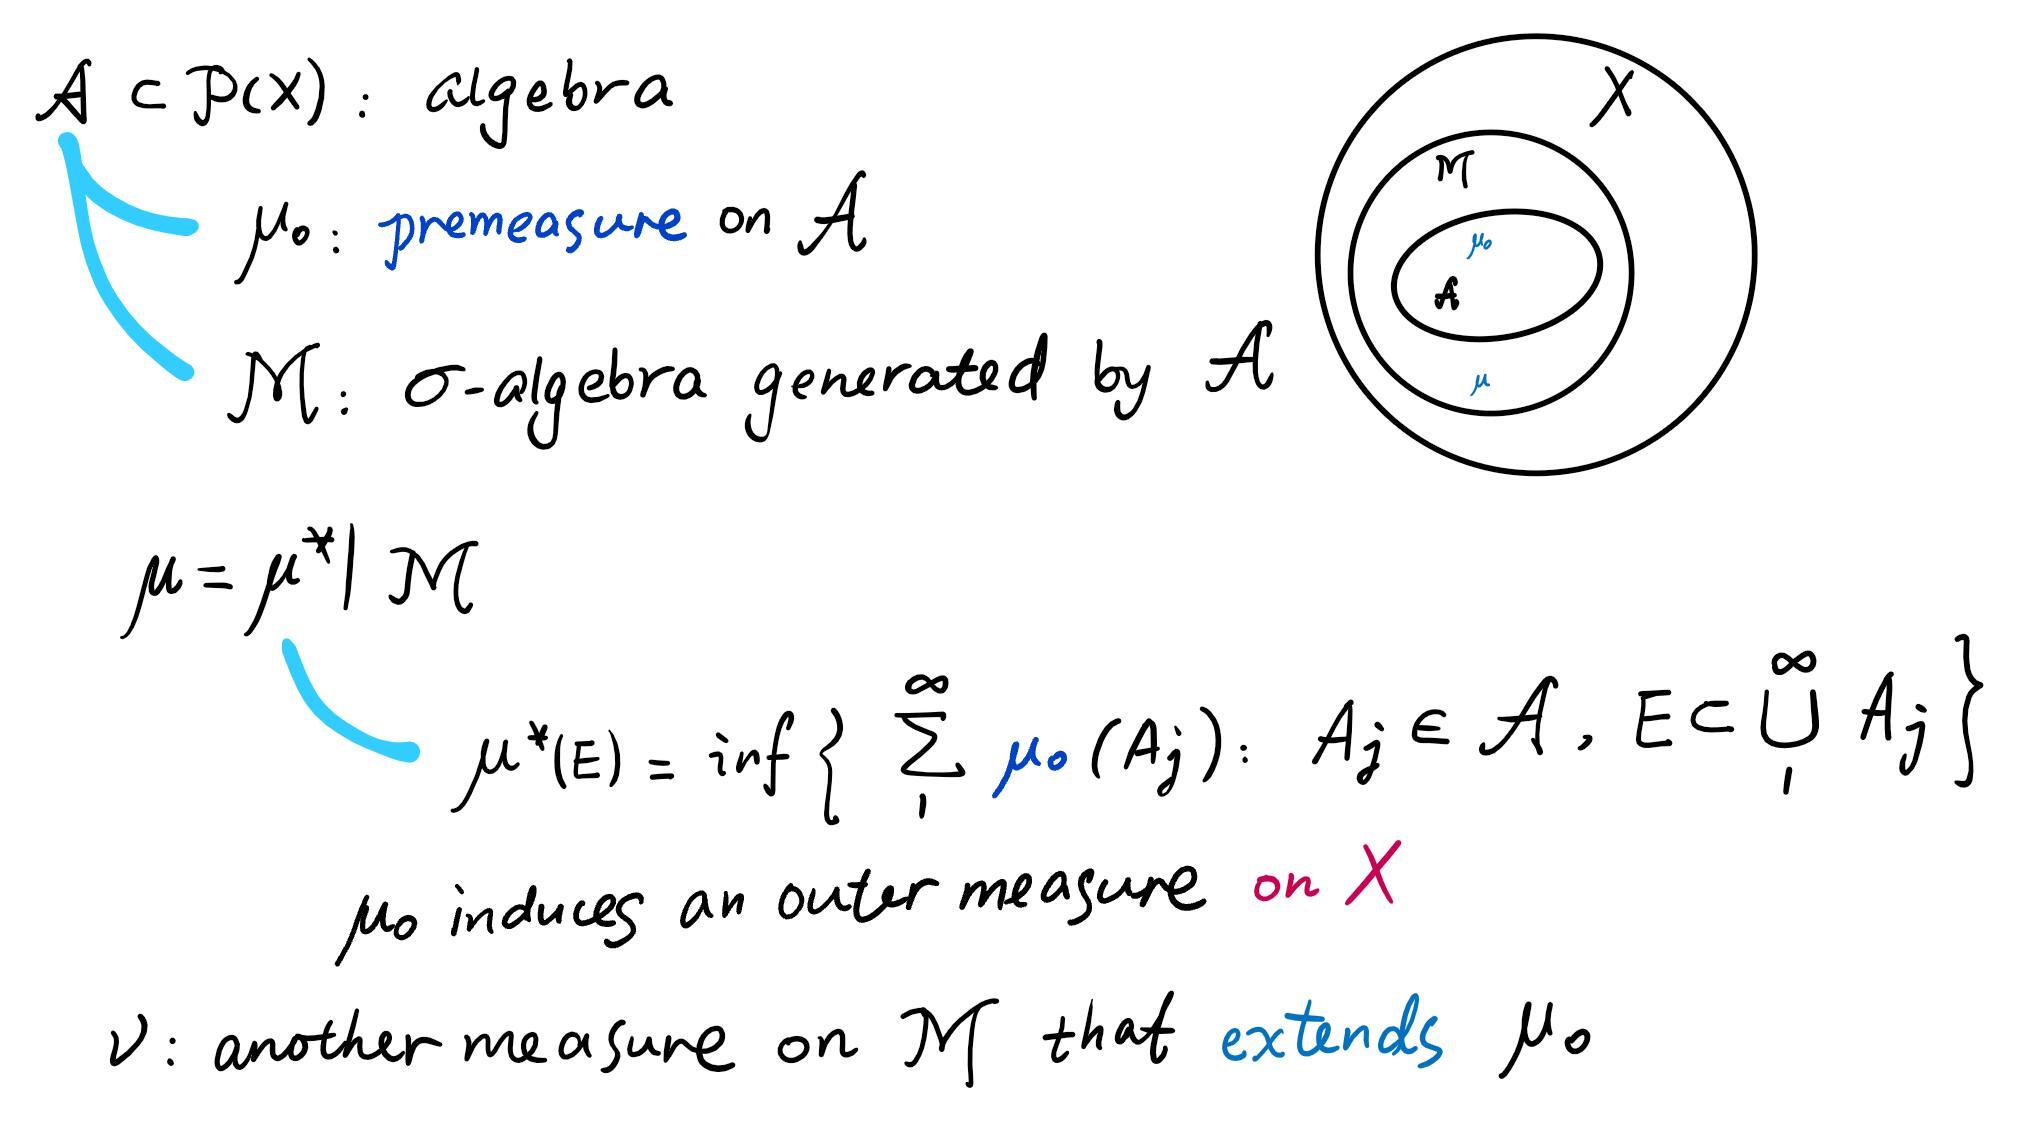 𝒜 ⊂ 𝒫(X) : algebra
μ₀ : premeasure on 𝒜
ℳ : σ-algebra generated by 𝒜
X
ℳ
μ₀
𝒜
μ
μ = μ*| ℳ
μ*(E) = inf { ∑₁^∞ μ₀ (Aⱼ) : Aⱼ ∈ 𝒜, E ⊂ ⋃₁^∞ Aⱼ }
μ₀ induces an outer measure on X
ν : another measure on ℳ that extends μ₀